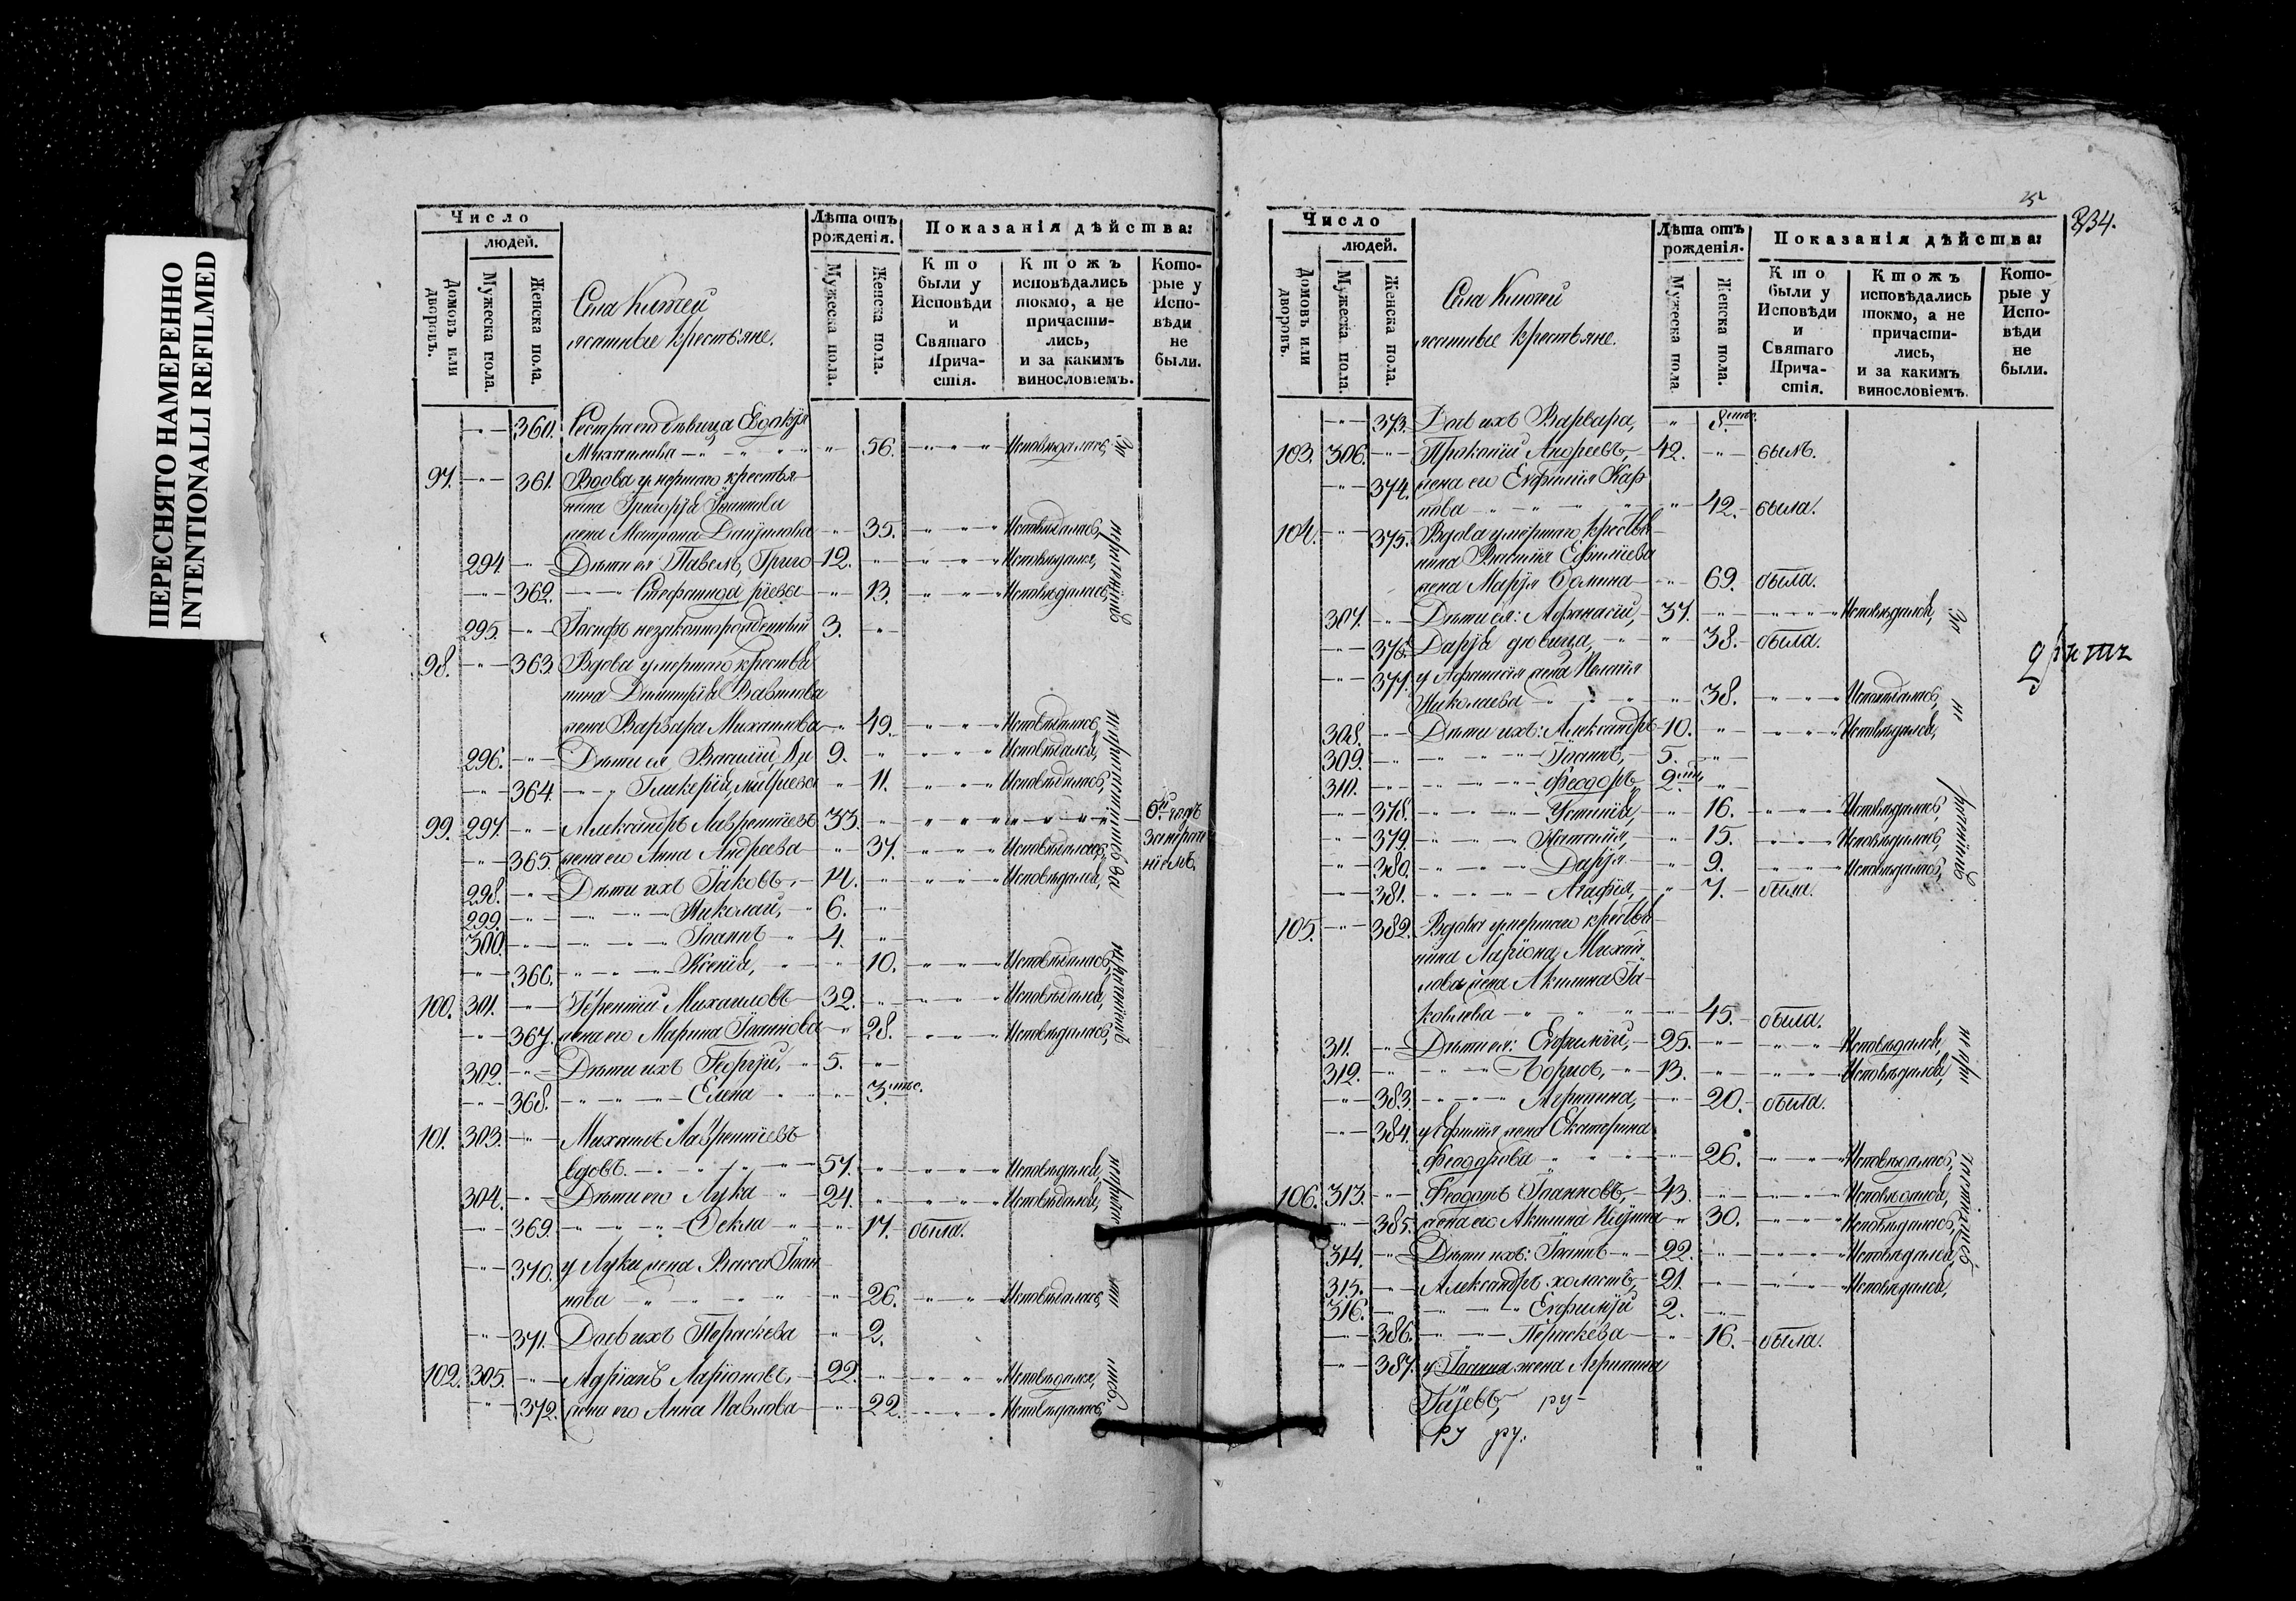 ПЕРЕСНЯТО НАМЕРЕННО
INTENTIONALLI REFILMED
Число
людей.
Домовъ или дворовъ.
Мужеска пола.
Женска пола.
Села Ключей
ясашные крестьяне.
Лѣта отъ рожденія.
Мужеска пола.
Женска пола.
Показанія дѣйства:
Кто были у Исповѣди и Святаго Причастія.
Ктожъ исповѣдались токмо, а не причастились, и за какимъ винословіемъ.
Которые у Исповѣди не были.
360. Сестра его дѣвица Евдокія
Михаилова 56. Исповѣдалась,
97. 361. Вдова умершаго крестья-
нина Григорія Іоаннова
жена Матрона Даніилова 35. Исповѣдалась,
294. Дѣти ея Павелъ, Григо 12. Исповѣдался,
362. Стефанида рьевы 13. Исповѣдалась,
295. Іосифъ незаконнорожденный 3.
98. 363. Вдова умершаго крестья
нина Димитрія Вавилова
жена Варвара Михаилова 49. Исповѣдалась,
296. Дѣти ея Василій, Ди 9. Исповѣдался,
364. Гликерія, митріевы 11. Исповѣдалась,
99. 297. Александръ Лаврентіевъ 33. 6й годъ
365. жена его Анна Андреева 37. Исповѣдалась,
298. Дѣти ихъ Іаковъ, 14. Исповѣдался,
299. Николай, 6.
300. Іоаннъ 4.
366. Ксенія, 10. Исповѣдалась,
100. 301. Терентій Михаиловъ 32. Исповѣдался,
367. жена его Марина Іоаннова 28. Исповѣдалась,
302. Дѣти ихъ Георгій, 5.
368. Елена 3 мѣс.
101. 303. Михаилъ Лаврентіевъ
вдовъ. 57. Исповѣдался,
304. Дѣти его Лука 24. Исповѣдался,
369. Ѳекла 17. была.
370. у Луки жена Васса Іоан
нова 26. Исповѣдалась,
371. Дочь ихъ Параскева 2.
102. 305. Адріанъ Ларіоновъ, 22. Исповѣдался,
372. жена его Анна Павлова 22. Исповѣдалась,
25
234.
Число
людей.
Домовъ или дворовъ.
Мужеска пола.
Женска пола.
Села Ключей
ясашные крестьяне.
Лѣта отъ рожденія.
Мужеска пола
Женска пола.
Показанія дѣйства:
Кто были у Исповѣди и Святаго Причастія.
Ктожъ исповѣдались токмо, а не причастились, и за какимъ винословіемъ.
Которые у Исповѣди не были.
373. Дочь ихъ Варвара,
103. 306. Прокопій Андреевъ, 42. былъ.
374. жена его Евфимія Кар
пова 42. была.
104. 375. Вдова умершаго крестья
нина Василія Ефимьева
жена Марія Ѳомина 69. была.
307. Дѣти ея: Аѳанасій, 37. Исповѣдался,
376. Дарія дѣвица, 38. была.
377. у Аѳанасія жена Пелагія
Николаева 38. Исповѣдалась,
308. Дѣти ихъ: Александръ 10. Исповѣдался,
309. Іоаннъ, 5.
310. Ѳеодоръ
378. Устинія, 16. Исповѣдалась,
379. Наталія, 15. Исповѣдалась,
380. Дарія 9. Исповѣдалась,
381. Агафія, 7. была.
105. 382. Вдова умершаго крестья
нина Ларіона Михай
лова жена Акилина Іа-
ковлева 45. была.
311. Дѣти ея: Евфимій, 25. Исповѣдался,
312. Борисъ, 13. Исповѣдался,
383. Агрипина, 20. была.
384. у Ефимія жена Екатерина
Ѳеодорова 26. Исповѣдалась,
106. 313. Ѳеодотъ Іоанновъ, 43. Исповѣдался,
385. жена его Акилина 30. Исповѣдалась,
314. Дѣти ихъ: Іоаннъ 22. Исповѣдался,
315. Александръ холостъ, 21. Исповѣдался,
316. Евфимій 2.
386. Параскева 16. была.
387. у Іоанна жена Агрипина